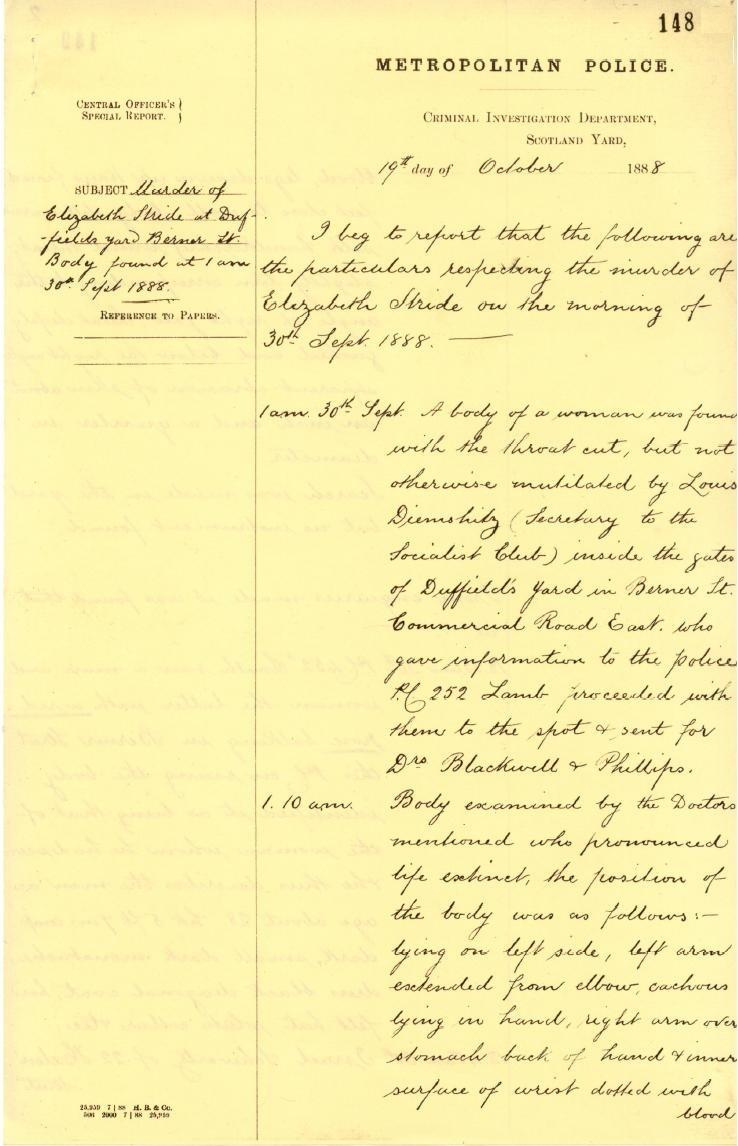 148
METROPOLITAN POLICE.
CENTRAL OFFICER'S
SPECIAL REPORT.
CRIMINAL INVESTIGATION DEPARTMENT,
SCOTLAND YARD,
19th day of October 1888
SUBJECT Murder of
Elizabeth Stride at Duf-
-fields yard Berner St.
Body found at 1 am
30th Sept 1888.
REFERENCE TO PAPERS.
I beg to report that the following are
the particulars respecting the murder of
Elizabeth Stride on the morning of
30th Sept. 1888.
1 am. 30th Sept. A body of a woman was found
with the throat cut, but not
otherwise mutilated by Louis
Diemshitz (Secretary to the
Socialist Club) inside the gates
of Duffield's Yard in Berner St.
Commercial Road East. who
gave information to the police
P.C. 252 Lamb proceeded with
them to the spot & sent for
Drs Blackwell & Phillips.
1. 10 am. Body examined by the Doctors
mentioned who pronounced
life extinct, the position of
the body was as follows:–
lying on left side, left arm
extended from elbow, cachous
lying in hand, right arm over
stomach back of hand & inner
surface of wrist dotted with
blood
25,959 7 | 88 H. B. & Co.
506 2000 7 | 88 25,959